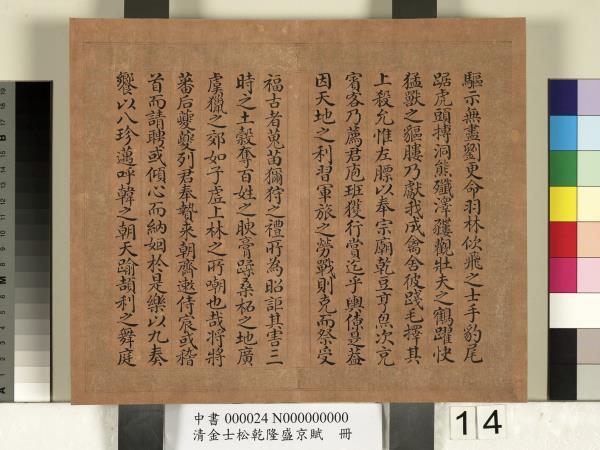 驅示無盡劉更命羽林佽飛之士手豹尾
踞虎頭搏洞熊殲澤玃觀壯夫之鶚躍快
猛獸之驅膢乃獻我成禽舍彼踐毛擇其
上殺允惟左膘以奉宗廟乾豆亨炰次充
賓客乃薦君庖班獲行賞迄乎輿儓是蓋
因天地之利習軍旅之勞戰則克而祭受
福古者蒐苗獮狩之禮所為昭詎其害三
時之土穀奪百姓之腴膏蹂桑柘之地廣
虞獵之郊如子虛上林之所嘲也哉將將
蕃后夔夔列君奉贄來朝齊遬侍宸或稽
首而請聘或傾心而納姻於是樂以九奏
饗以八珍邁呼韓之朝天踰頡利之舞庭
中書 000024 N000000000
清金士松乾隆盛京賦 冊
14